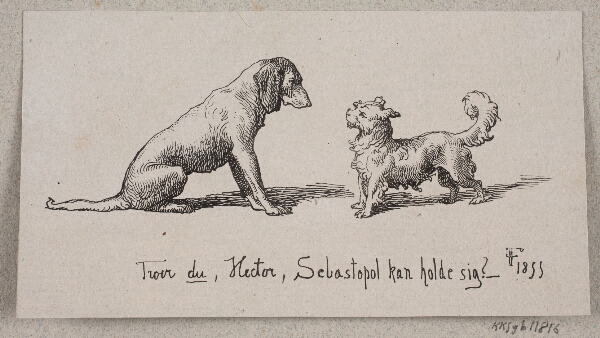 Troer du, Hector, Sebastopol kan holde sig?_ 1855
KKSgb11816